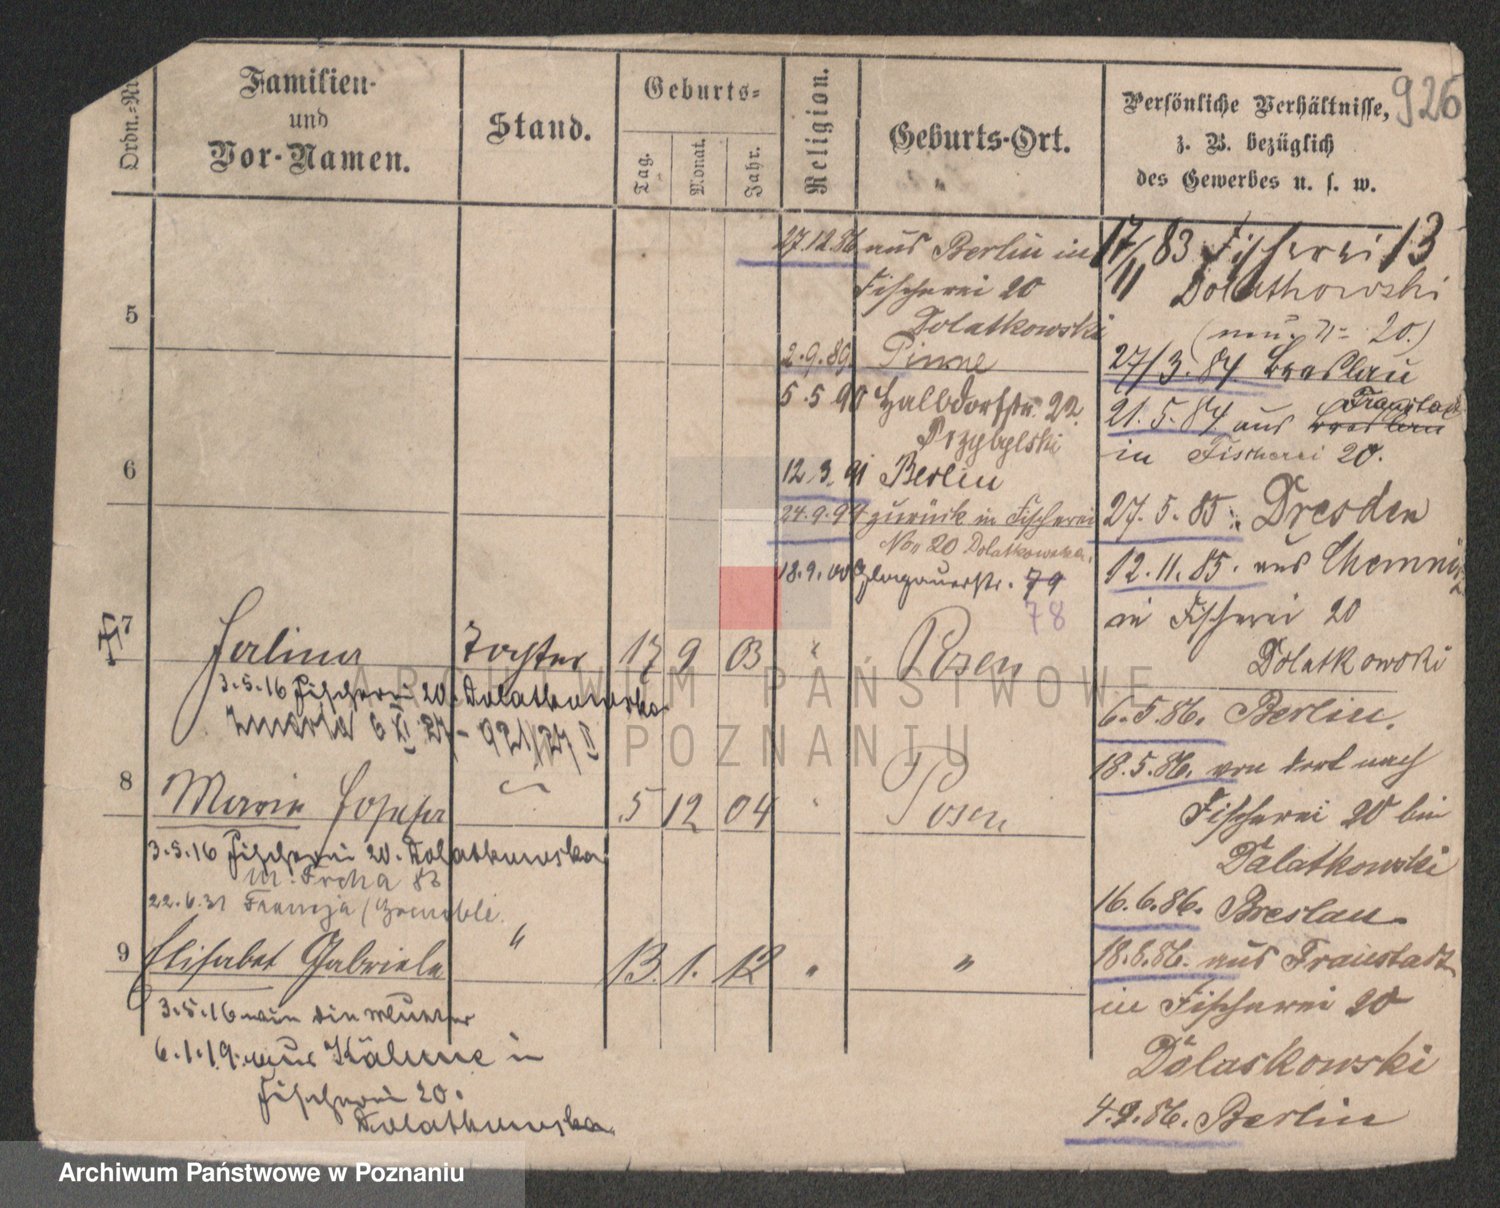 926
Ordn.-Nr.
Familien-
und
Vor-Namen.
Stand.
Geburts-
Tag.
Monat.
Jahr.
Religion.
Geburts-Ort.
Persönliche Verhältnisse,
z. B. bezüglich
des Gewerbes u. s. w.
5
27.12.86 aus Berlin in
Fischerei 20
Dolatkowski
2.9.89 Pinne
5.5.90 Halbdorfstr. 22.
Przybylski
6
12.3.91 Berlin
24.9.99 zurück in Fischerei
No 20 Dolatkowska.
18.9.00 Glogauerstr. 79
78
17/11 83 Fischerei 13
Dolatkowski
(neue N= 20.)
27/3.84 Breslau
Fraustadt
21.5.84 aus Breslau
in Fischerei 20.
27.5.85. Dresden
12.11.85. aus Chemnitz
in Fischerei 20
Dolatkowski
6.5.86. Berlin.
18.5.86. von dort nach
Fischerei 20 bei
Dolatkowski
16.6.86. Breslau.
18.8.86. aus Fraustadt
in Fischerei 20
Dolaskowski
4.9.86. Berlin
7 Halina Tochter 17 9 03 " Posen
3.5.16 Fischerei 20. Dolatkowska
Zmarła 6 XI 27 - 921/27 II
8 Marie Josefa " 5 12 04 " Posen
3.5.16 Fischerei 20. Dolatkowska
22.6.31 Francja / Grenoble
9 Elisabet Gabriela " 13. 1. 12 " "
3.5.16 wie die Mutter
6.1.19. aus
in
Fischerei 20.
Dolatkowska
ARCHIWUM PAŃSTWOWE
W POZNANIU
Archiwum Państwowe w Poznaniu